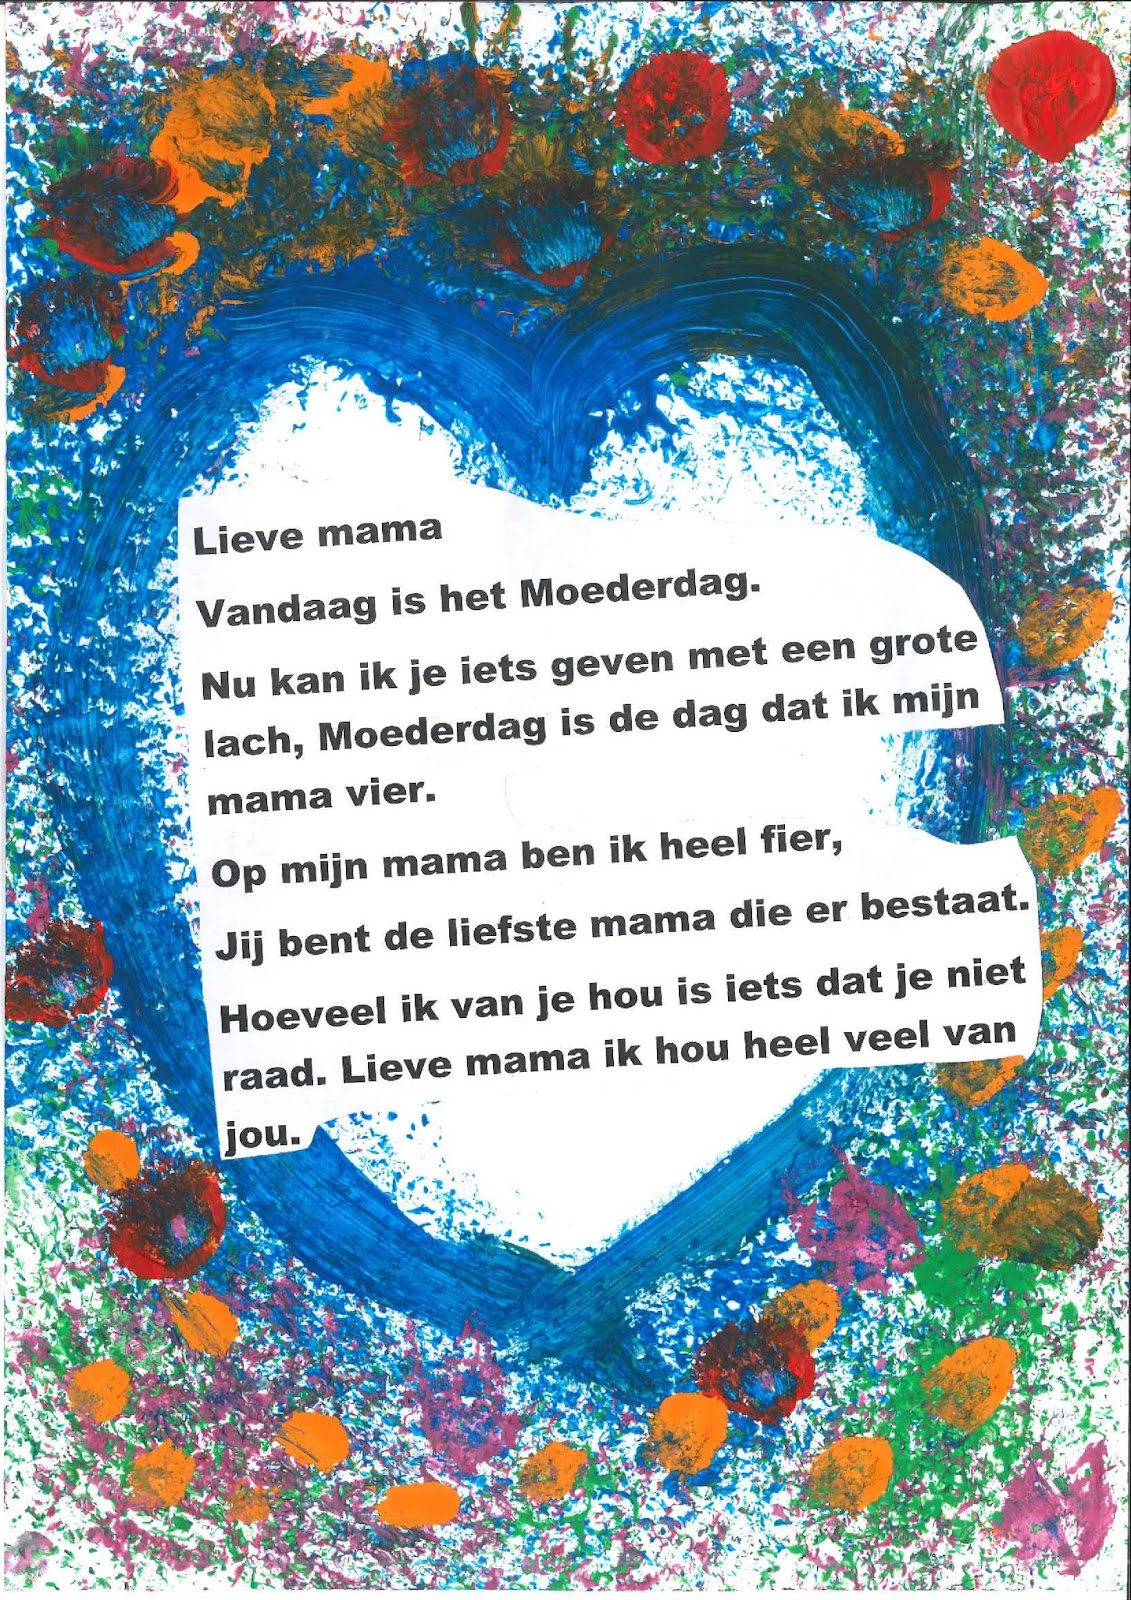 Lieve mama
Vandaag is het Moederdag.
Nu kan ik je iets geven met een grote
lach, Moederdag is de dag dat ik mijn
mama vier.
Op mijn mama ben ik heel fier,
Jij bent de liefste mama die er bestaat.
Hoeveel ik van je hou is iets dat je niet
raad. Lieve mama ik hou heel veel van
jou.